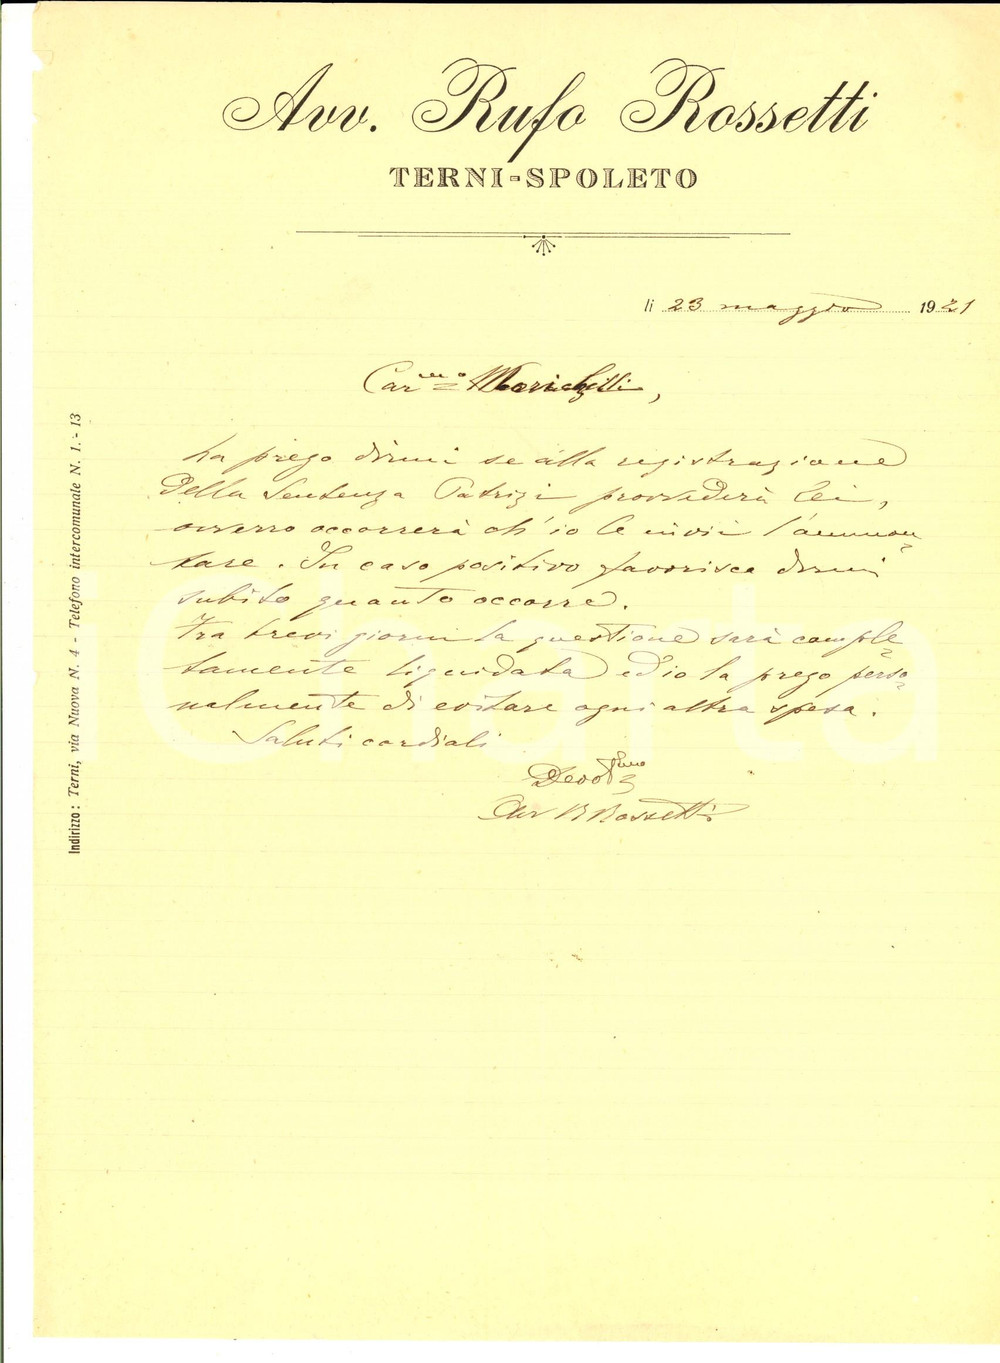 Avv. Rufo Rossetti
TERNI-SPOLETO
li 23 maggio 1921
Car.mo Morichelli,
La prego dirmi se alla registrazione
della Sentenza Patrizi provvederà lei,
ovvero occorrerà ch'io le invii l'ammon=
tare. In caso positivo favorisca dirmi
subito quanto occorre.
Tra brevi giorni la questione sarà comple=
tamente liquidata ed io la prego perso=
nalmente di evitare ogni altra spesa.
Saluti cordiali
Devot.mo
Avv R Rossetti
Indirizzo: Terni, via Nuova N. 4 - Telefono intercomunale N. 1.-13